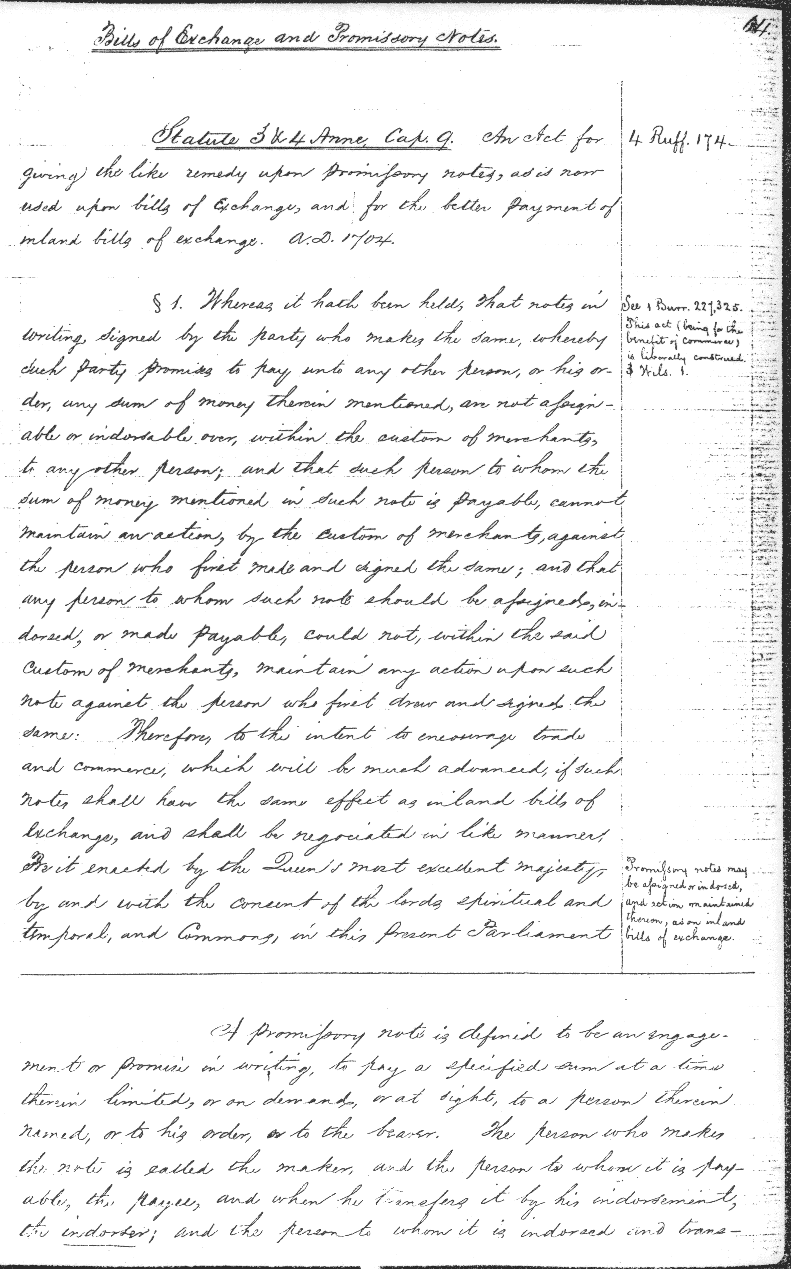 Bills of Exchange and Promissory Notes.
Statute 3 & 4 Anne, Cap. 9. An Act for
4 Ruff. 174.
giving the like remedy upon promissory notes, as is now
used upon bills of Exchange, and for the better payment of
inland bills of exchange. A.D. 1704.
§ 1. Whereas it hath been held, that notes in
writing, signed by the party who makes the same, whereby
such party promises to pay unto any other person, or his or-
der, any sum of money therein mentioned, are not assign-
able or indorsable over, within the custom of merchants,
to any other person; and that such person to whom the
sum of money mentioned in such note is payable, cannot
maintain an action, by the custom of merchants, against
the person who first made and signed the same; and that
any person to whom such note should be assigned, in-
dorsed, or made payable, could not, within the said
custom of merchants, maintain any action upon such
note against the person who first drew and signed the
same: Therefore, to the intent to encourage trade
and commerce, which will be much advanced, if such
notes shall have the same effect as inland bills of
exchange, and shall be negociated in like manner,
Be it enacted by the Queen's most excellent majesty,
by and with the consent of the lords spiritual and
temporal, and Commons, in this present Parliament
See 1 Burr. 227, 325.
This act (being for the
benefit of commerce)
is liberally construed.
Wils. 1.
Promissory notes may
be assigned or indorsed,
and action maintained
thereon, as on inland
bills of exchange.
A promissory note is defined to be an engage-
ment or promise in writing, to pay a specified sum at a time
therein limited, or on demand, or at sight, to a person therein
named, or to his order, or to the bearer. The person who makes
the note is called the maker, and the person to whom it is pay-
able, the payee, and when he transfers it by his indorsement,
the indorser; and the person to whom it is indorsed and trans-